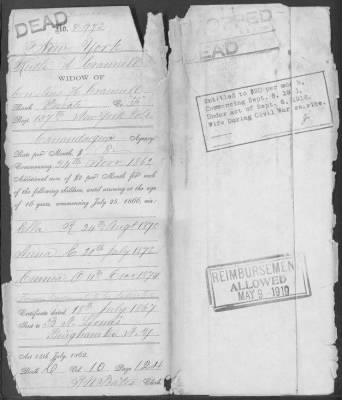 DEAD
No. 8,972
New York
Ruth A Crannell
WIDOW OF
Wm H Crannell
Rank Private Co. "F"
Regt. 137th New York Vols
Canandaigua Agency
Rate per Month, $ 8.
Commencing 24th Nov 1862
Additional sum of $2 per Month for each
of the following children, until arriving at the age
of 16 years, commencing July 25, 1866, viz:
Ella R 24th Augt 1870
Anna E 20th July 1872
Emma A 11th Dec 1874
Certificate dated 18th July 1867
Sent to
Binghamton N.Y.
Act 14th July, 1862.
Book C Vol. 10 Page 124
Clerk
DROPPED
DEAD
Entitled to $20 per month,
Commencing Sept. 8, 1916,
Under act of Sept. 8, 1916,
Wife During Civil War service.
REIMBURSEMEN
ALLOWED
MAY 9 1919